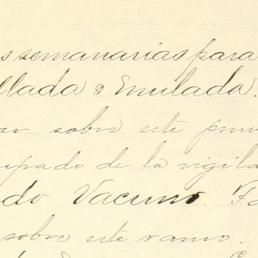 s semanarias para
llada o Emulada.
ar sobre este
upado de la vigila
do Vacuno. Fa
sobre este ramo.